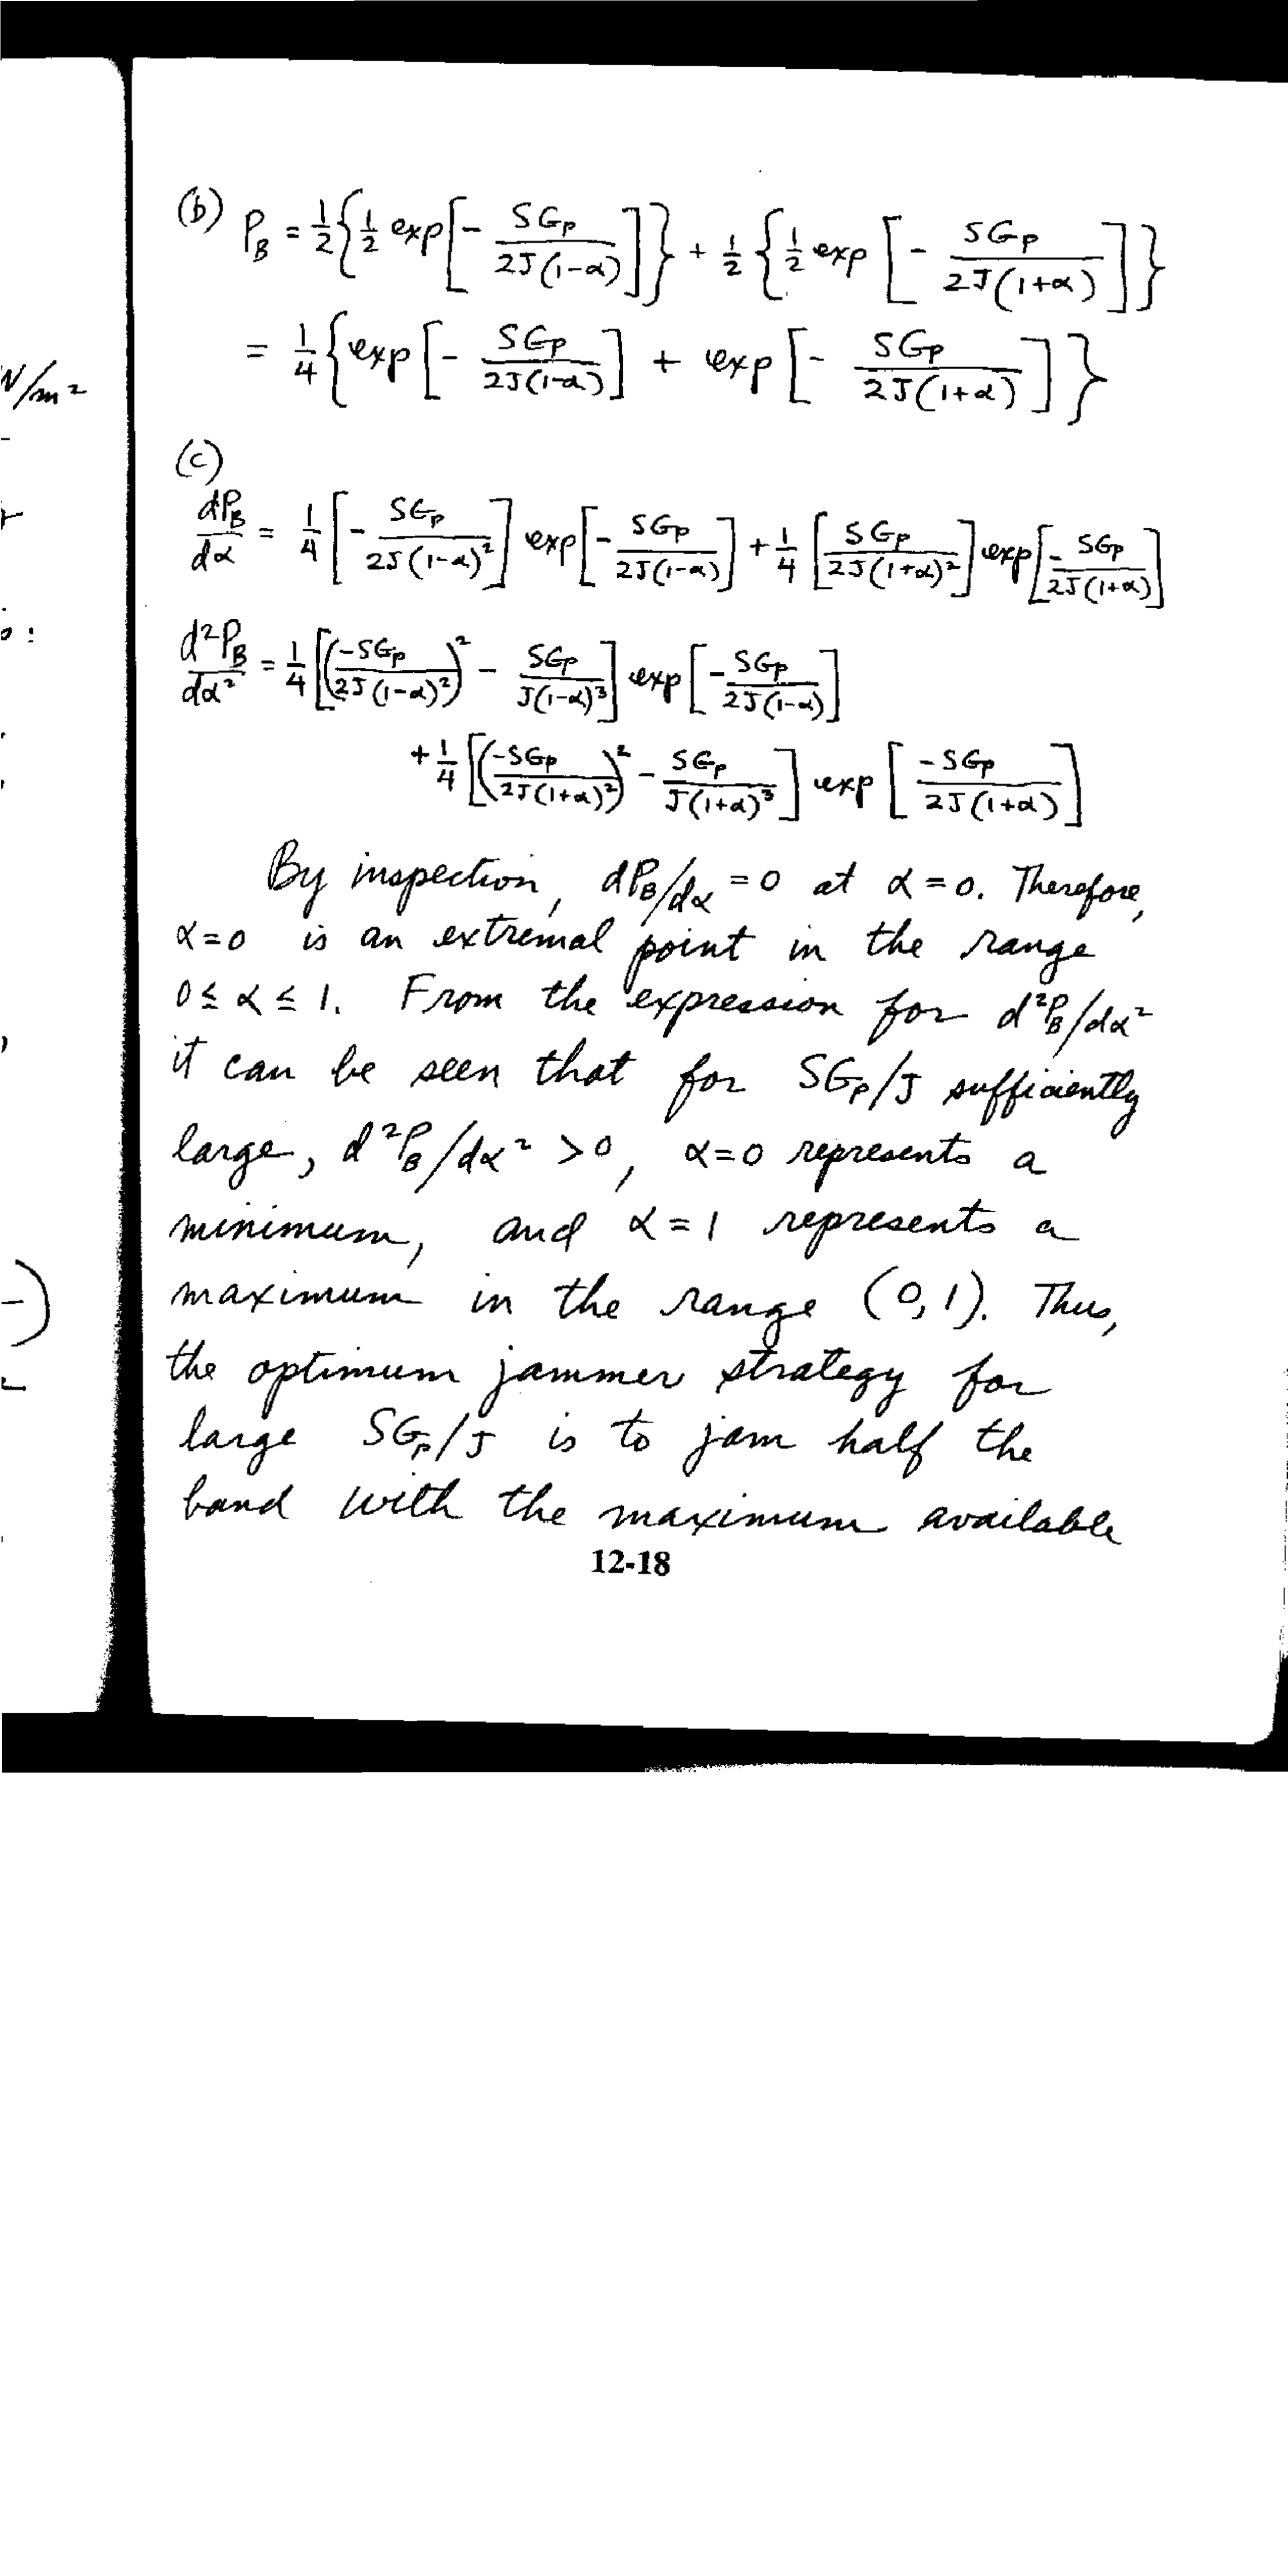 N/m²
(b) P_B = 1/2 {1/2 exp[- SGp / 2J(1-α)]} + 1/2 {1/2 exp[- SGp / 2J(1+α)]}
= 1/4 {exp[- SGp / 2J(1-α)] + exp[- SGp / 2J(1+α)]}
(c)
dP_B/dα = 1/4 [- SGp / 2J(1-α)²] exp[- SGp / 2J(1-α)] + 1/4 [SGp / 2J(1+α)²] exp[- SGp / 2J(1+α)]
d²P_B/dα² = 1/4 [(-SGp / 2J(1-α)²)² - SGp / J(1-α)³] exp[-SGp / 2J(1-α)]
+ 1/4 [(-SGp / 2J(1+α)²)² - SGp / J(1+α)³] exp[-SGp / 2J(1+α)]
By inspection, dP_B/dα = 0 at α = 0. Therefore,
α=0 is an extremal point in the range
0 ≤ α ≤ 1. From the expression for d²P_B/dα²
it can be seen that for SGp/J sufficiently
large, d²P_B/dα² > 0, α=0 represents a
minimum, and α = 1 represents a
maximum in the range (0,1). Thus,
the optimum jammer strategy for
large SGp/J is to jam half the
band with the maximum available
12-18